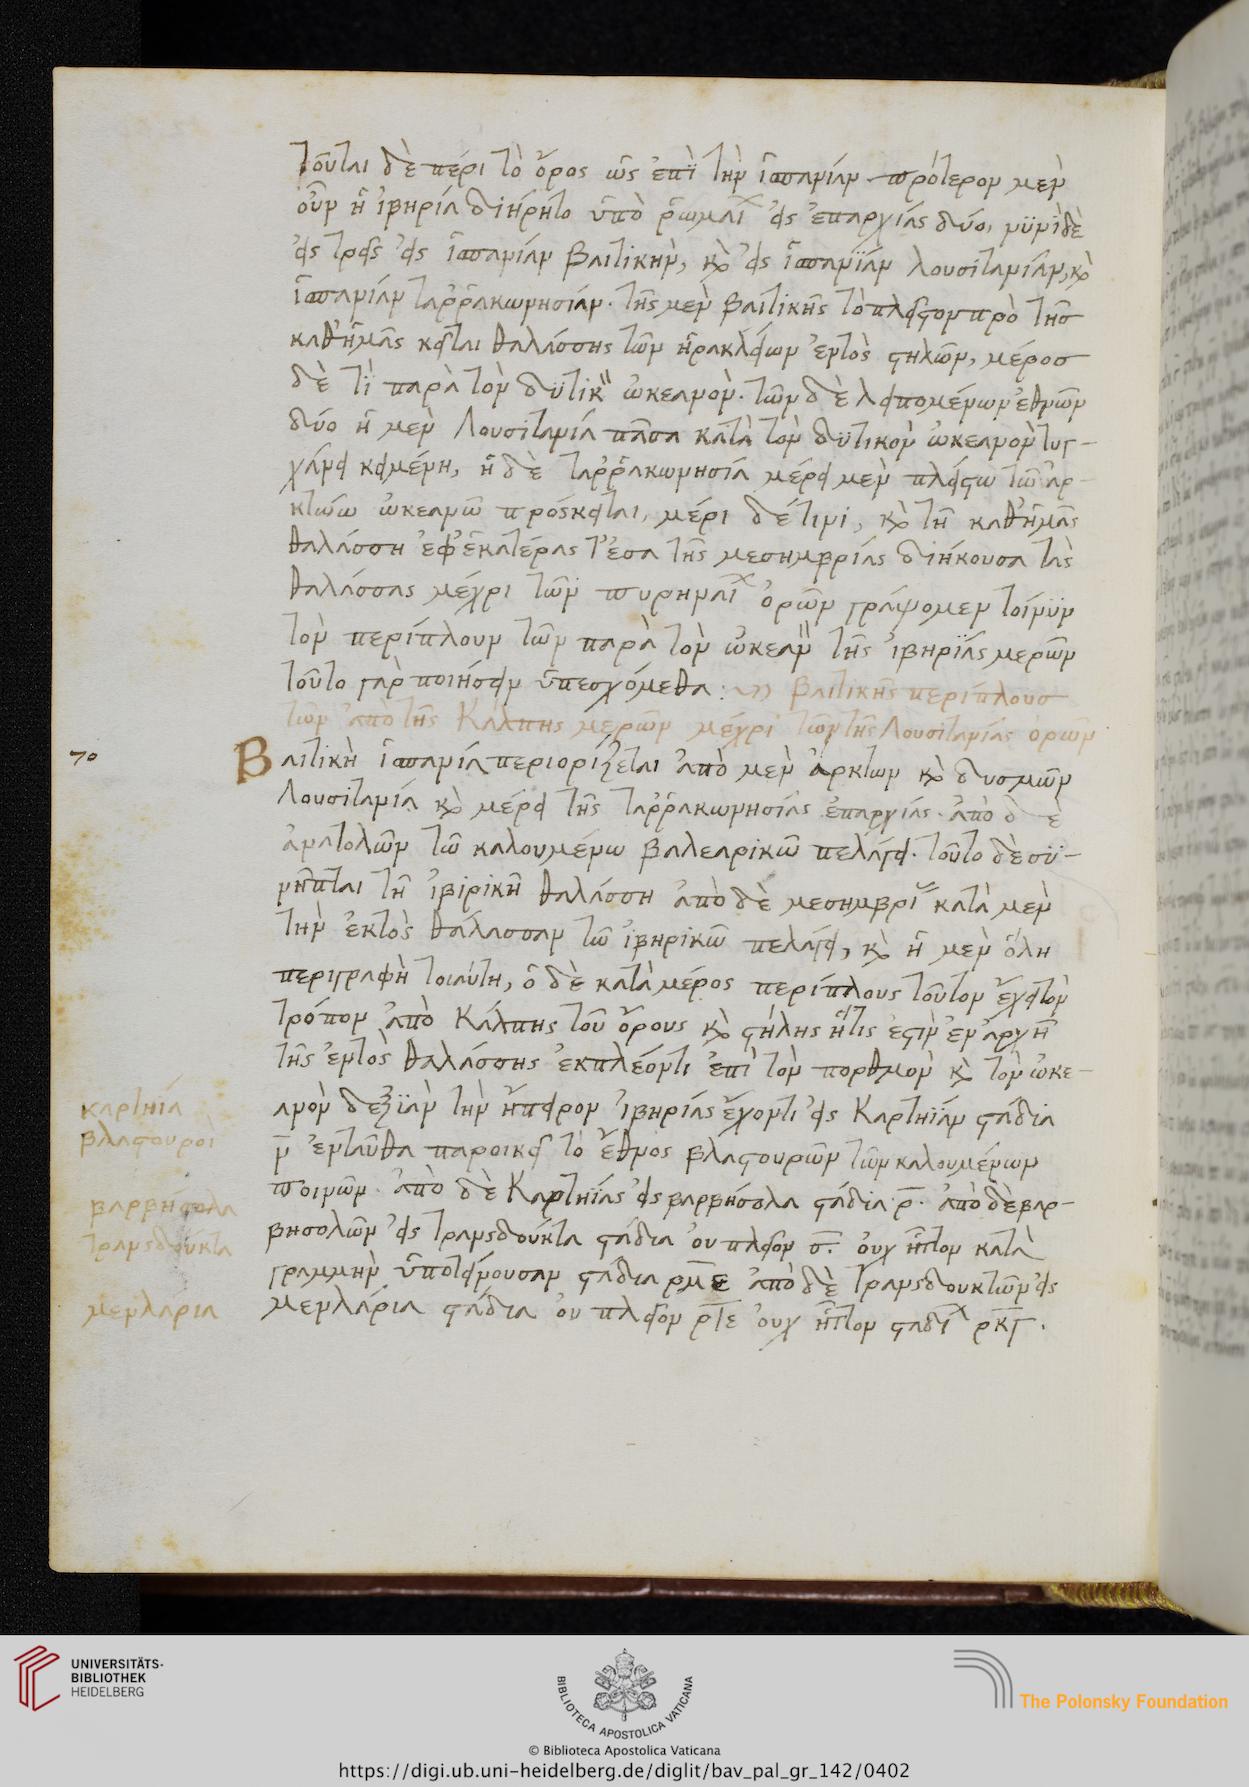 τοῦται δὲ πέρι τὸ ὄρος ὡς ἐπὶ τὴν ἱσπανίαν. πρότερον μὲν
οὖν ἡ ἰβηρία διήρητο ὑπὸ ῥωμαί εἰς ἐπαρχίας δύο, νϋνὶ δὲ
εἰς τρεῖς εἰς ἱσπανίαν βαιτικὴν, κὰ εἰς ἱσπανΐαν λουσιτανίαν, κὰ
ἱσπανίαν ταῤῥακωνησίαν. τῆς μὲν βαιτικῆς τὸ πλεῖστον πρὸ τῆς
καθ' ἡμᾶς κεῖται θαλάσσης τῶν ἡρακλείων ἐντὸς στηλῶν, μέρος
δὲ τὶ παρὰ τὸν δϋτικ ὠκεανὸν. τῶν δὲ λειπομένων ἐθνῶν
δύο ἡ μὲν Λουσιτανία πᾶσα κατὰ τὸν δϋτικὸν ὠκεανὸν τυγ-
χάνει κειμένη, ἡ δὲ ταῤῥακωνησία μέρει μὲν πλείστω τῶ ἀρ-
κτώω ὠκεανῶ πρόσκειται, μέρι δέ τινι, κὰ τῆ καθ' ἡμᾶς
θαλάσση ἐφ' ἑκατέρας τ' ἔσα τῆς μεσημβρίας διήκουσα τὰς
θαλάσσας μέχρι τῶν πυρηναί ὀρῶν γράψομεν τοίνϋν
τὸν περίπλουν τῶν παρὰ τὸν ὠκεαν τῆς ἰβηρΐας μερῶν
τοῦτο γὰρ ποιήσειν ὑπεσχόμεθα : βαιτικῆς περίπλους
τῶν ἀπὸ τῆς Κάλπης μερῶν μέχρι τῶν τῆς Λουσιτανίας ὁρῶν
70 Βαιτικὴ ἱσπανία περιορίζεται ἀπὸ μὲν ἄρκτων κὰ δυσμῶν
Λουσιτανία κὰ μέρει τῆς ταῤῥακωνησίας ἐπαρχίας. ἀπὸ δὲ
ἀνατολῶν τῶ καλουμένω βαλεαρικῶ πελάγει. τοῦτο δὲ σϋ-
νῆπται τῆ ἰβιρικῆ θαλάσση ἀπὸ δὲ μεσημβρί κατὰ μὲν
τὴν ἐκτὸς θάλασσαν τῶ ἰβηρικῶ πελάγει, κὰ ἡ μὲν ὅλη
περιγραφὴ τοιαύτη, ὁ δὲ κατὰ μέρος περίπλους τοῦτον ἔχει τὸν
τρόπον ἀπὸ Κάλπης τοῦ ὄρους κὰ στήλης ἥτις ἐστὶν ἐν ἀρχῆ
τῆς ἐντὸς θαλάσσης ἐκπλέοντι ἐπὶ τὸν πορθμὸν κὰ τὸν ὠκε-
ανὸν δεξϊὰν τὴν ἤπειρον ἰβηρίας ἔχοντι εἰς Καρτηΐαν στάδια
καρτηία
ν ἐνταῦθα παροικεῖ τὸ ἔθνος βλαστουρῶν τῶν καλουμένων
βλαστουροὶ
ποινῶν. ἀπὸ δὲ Καρτηΐας εἰς βαρβήσολα στάδια ρ. ἀπὸ δὲ βαρ-
βαρβήσολα
βησολῶν εἰς τρανσδούκτα στάδια οὐ πλεῖον σ. οὐχ ἧττον κατὰ
τρανσδούκτα
γραμμὴν ὑποτείνουσαν στάδια ρμε ἀπὸ δὲ τρανσδουκτῶν εἰς
μενλάρια στάδια οὐ πλεῖον ριε οὐχ ἧττον σταδί ρκγ.
μενλάρια
UNIVERSITÄTS-
BIBLIOTHEK
HEIDELBERG
BIBLIOTECA APOSTOLICA VATICANA
The Polonsky Foundation
© Biblioteca Apostolica Vaticana
https://digi.ub.uni-heidelberg.de/diglit/bav_pal_gr_142/0402